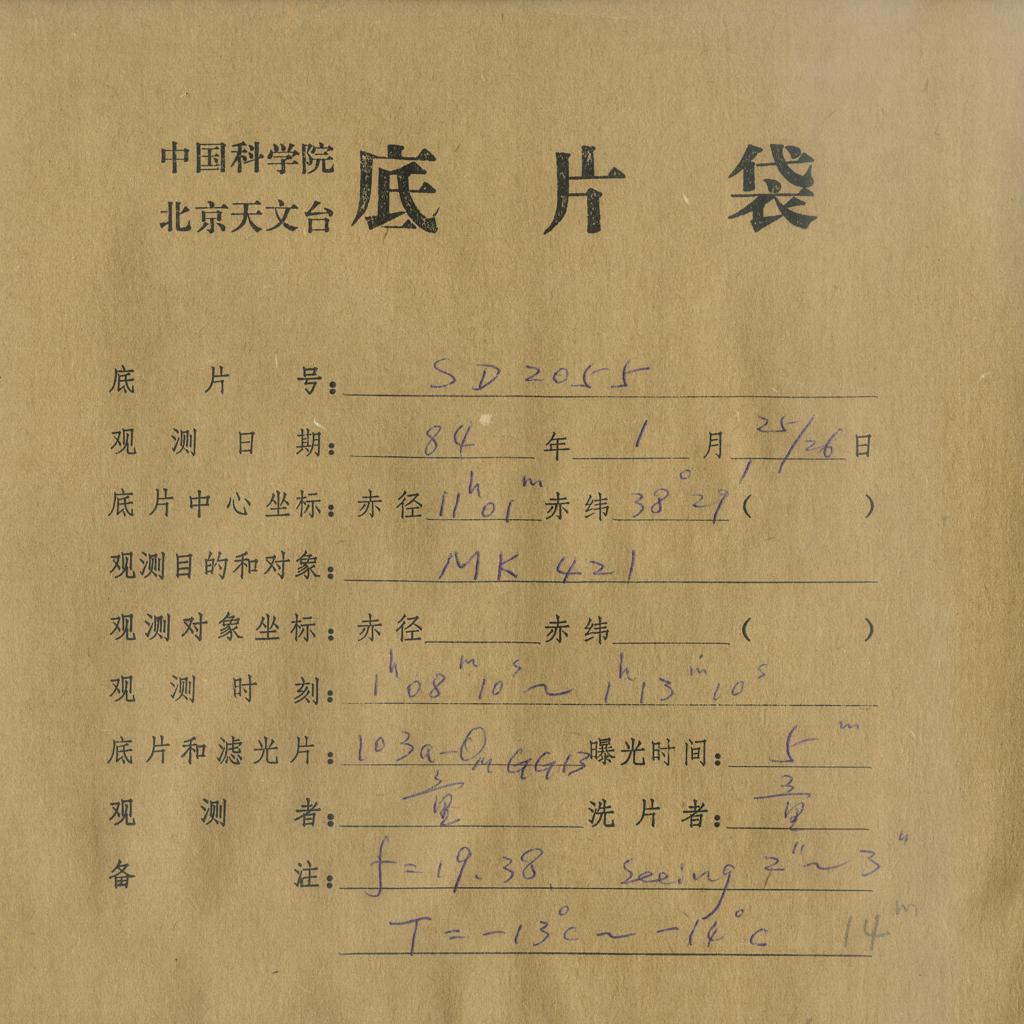 中国科学院
北京天文台 底片袋
底片号：SD2055
观测日期：84年1月25/26日
底片中心坐标：赤径11ʰ01ᵐ赤纬38°29′（ ）
观测目的和对象：MK 421
观测对象坐标：赤径 赤纬 （ ）
观测时刻：1ʰ08ᵐ10ˢ～1ʰ13ᵐ10ˢ
底片和滤光片：103a-O GG13 曝光时间：5ᵐ
观测者： 洗片者：
备注：f=19.38 Seeing 2″～3″
T=-13°C～-14°C 14ᵐ